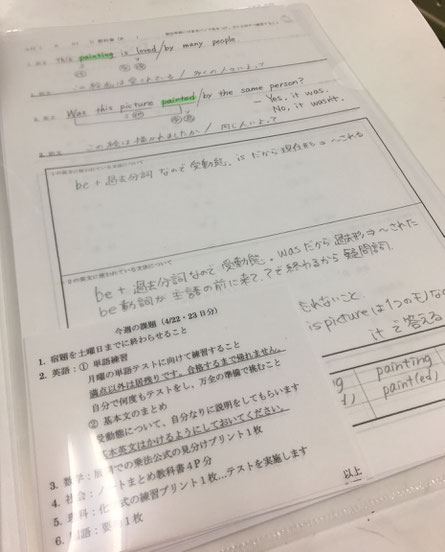 This painting is loved / by many people.
この絵画は愛されている / 多くの人々によって
Was this picture painted / by the same person?
- Yes, it was.
No, it wasn't.
この絵は描かれましたか / 同じ人によって
be + 過去分詞 なので 受動態。 is だから 現在形 ⇒ 〜される
be + 過去分詞なので 受動態。 wasだから 過去形 ⇒ 〜された
be 動詞が 主語の前に来て、?で終わるから 疑問詞。
れないこと。
is picture は1つのモノなの
it で 答える
painting
painted
今週の課題 (4/22・23日分)
1. 宿題を土曜日までに終わらせること
2. 英語:① 単語練習
月曜の単語テストに向けて練習すること
満点以外は居残りです。合格するまで帰れません。
自分で何度もテストをし、万全の準備で挑むこと
② 基本文のまとめ
受動態について、自分なりに説明をしてもらいます
基本英文はかけるようにしておいてください。
3. 数学:展開での乗法公式の見分けプリント1枚
4. 社会:ノートまとめ教科書4P分
5. 理科:化学式の練習プリント1枚…テストを実施します
6. 国語:要約1枚
以上